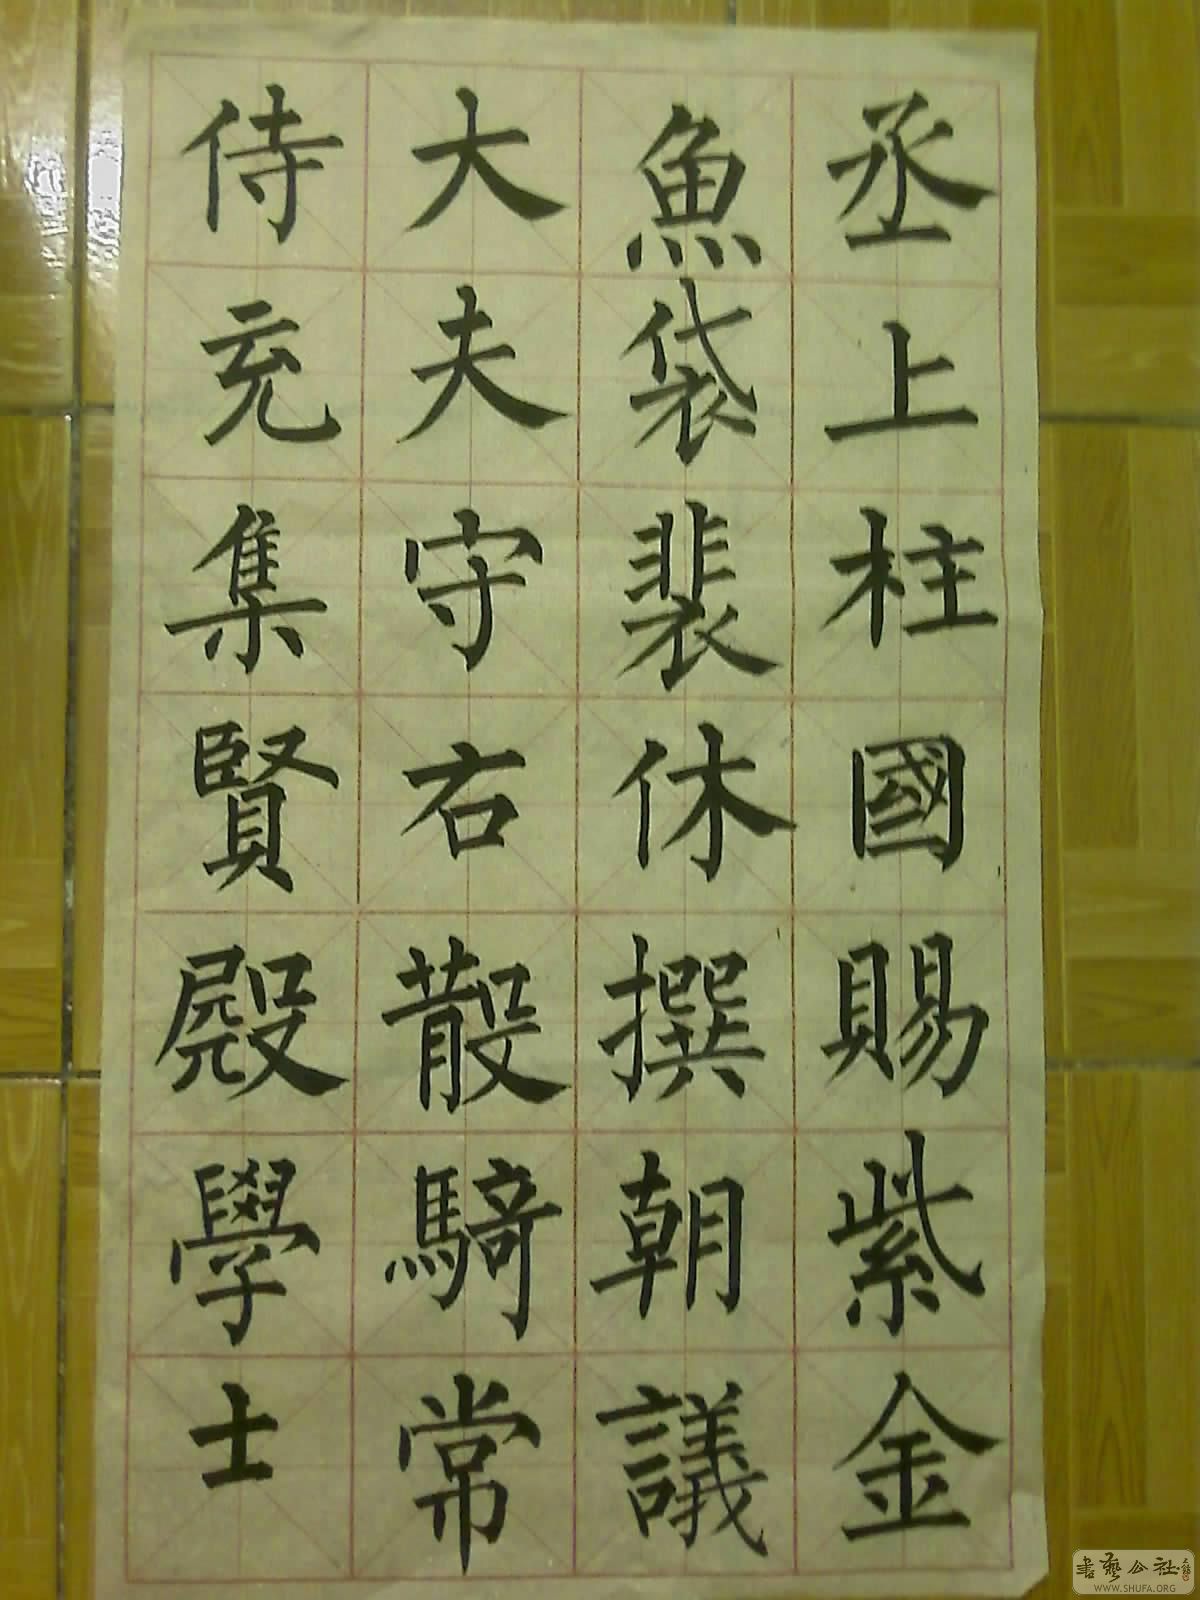 丞上柱國賜紫金
魚袋裴休撰朝議
大夫守右散騎常
侍充集賢殿學士
書藝公社
WWW.SHUFA.ORG